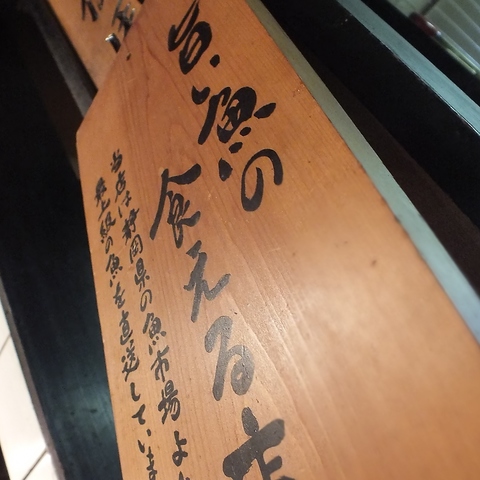 魚の
食える店
当店は静岡県の魚市場より
最上級の魚を直送しています